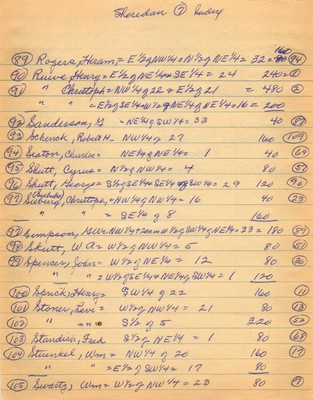 Sheredan (7) Index
(89) Rogers, Haam, = E½ of NW¼ = N½ of NE¼ = 32 = 160 (94)
(90) Ruive, Henry = E½ of NE¼ = SE¼ = 24 240 = (2)
(91) " Christoph = NW¼ of 22 = E½ of 21 = 480 (2)
" " = E½ of SE¼ = W½ of NE¼ of NE¼ = 16 = 200
(92) Sanderson, G = NE¼ of SW¼ = 33 40 (87)
(93) Schenck, Robert H. NW¼ of 27 160 (109)
(94) Seaton, Charles = NE¼ of NE¼ = 1 40 (69)
(95) Skutt, Cyrus = N½ of NW¼ = 4 80 (57)
(96) Skutt, George = S½ of SE¼ = SE¼ of SW¼ = 29 120 (96)
(97) Sieburg, Christoph, = NW¼ of NW¼ = 16 40 (23)
" " = SE¼ of 8 160
(97) Simpson, = 33 = 180 (84)
(98) Skutt, W A = W½ of NW¼ = 5 80 (51)
(99) Spencer, John = W½ of NE¼ = 12 80 (26)
" " = W½ of SE¼ = NE¼ of SW¼ = 1 120
(100) Sprick, Henry = SW¼ of 22 160 (11)
(101) Stoner, Levi = W½ of NW¼ = 21 80 (13)
(102) " " = S½ of 5 320 (52)
(103) Standish, Fred S½ of NE¼ = 1 80 (68)
(104) Struenkel, Wm = NW¼ of 20 160 (17)
" " = E½ of SW¼ = 17 80
(105) Swartz, Wm = W½ of NW¼ = 23 80 (9)